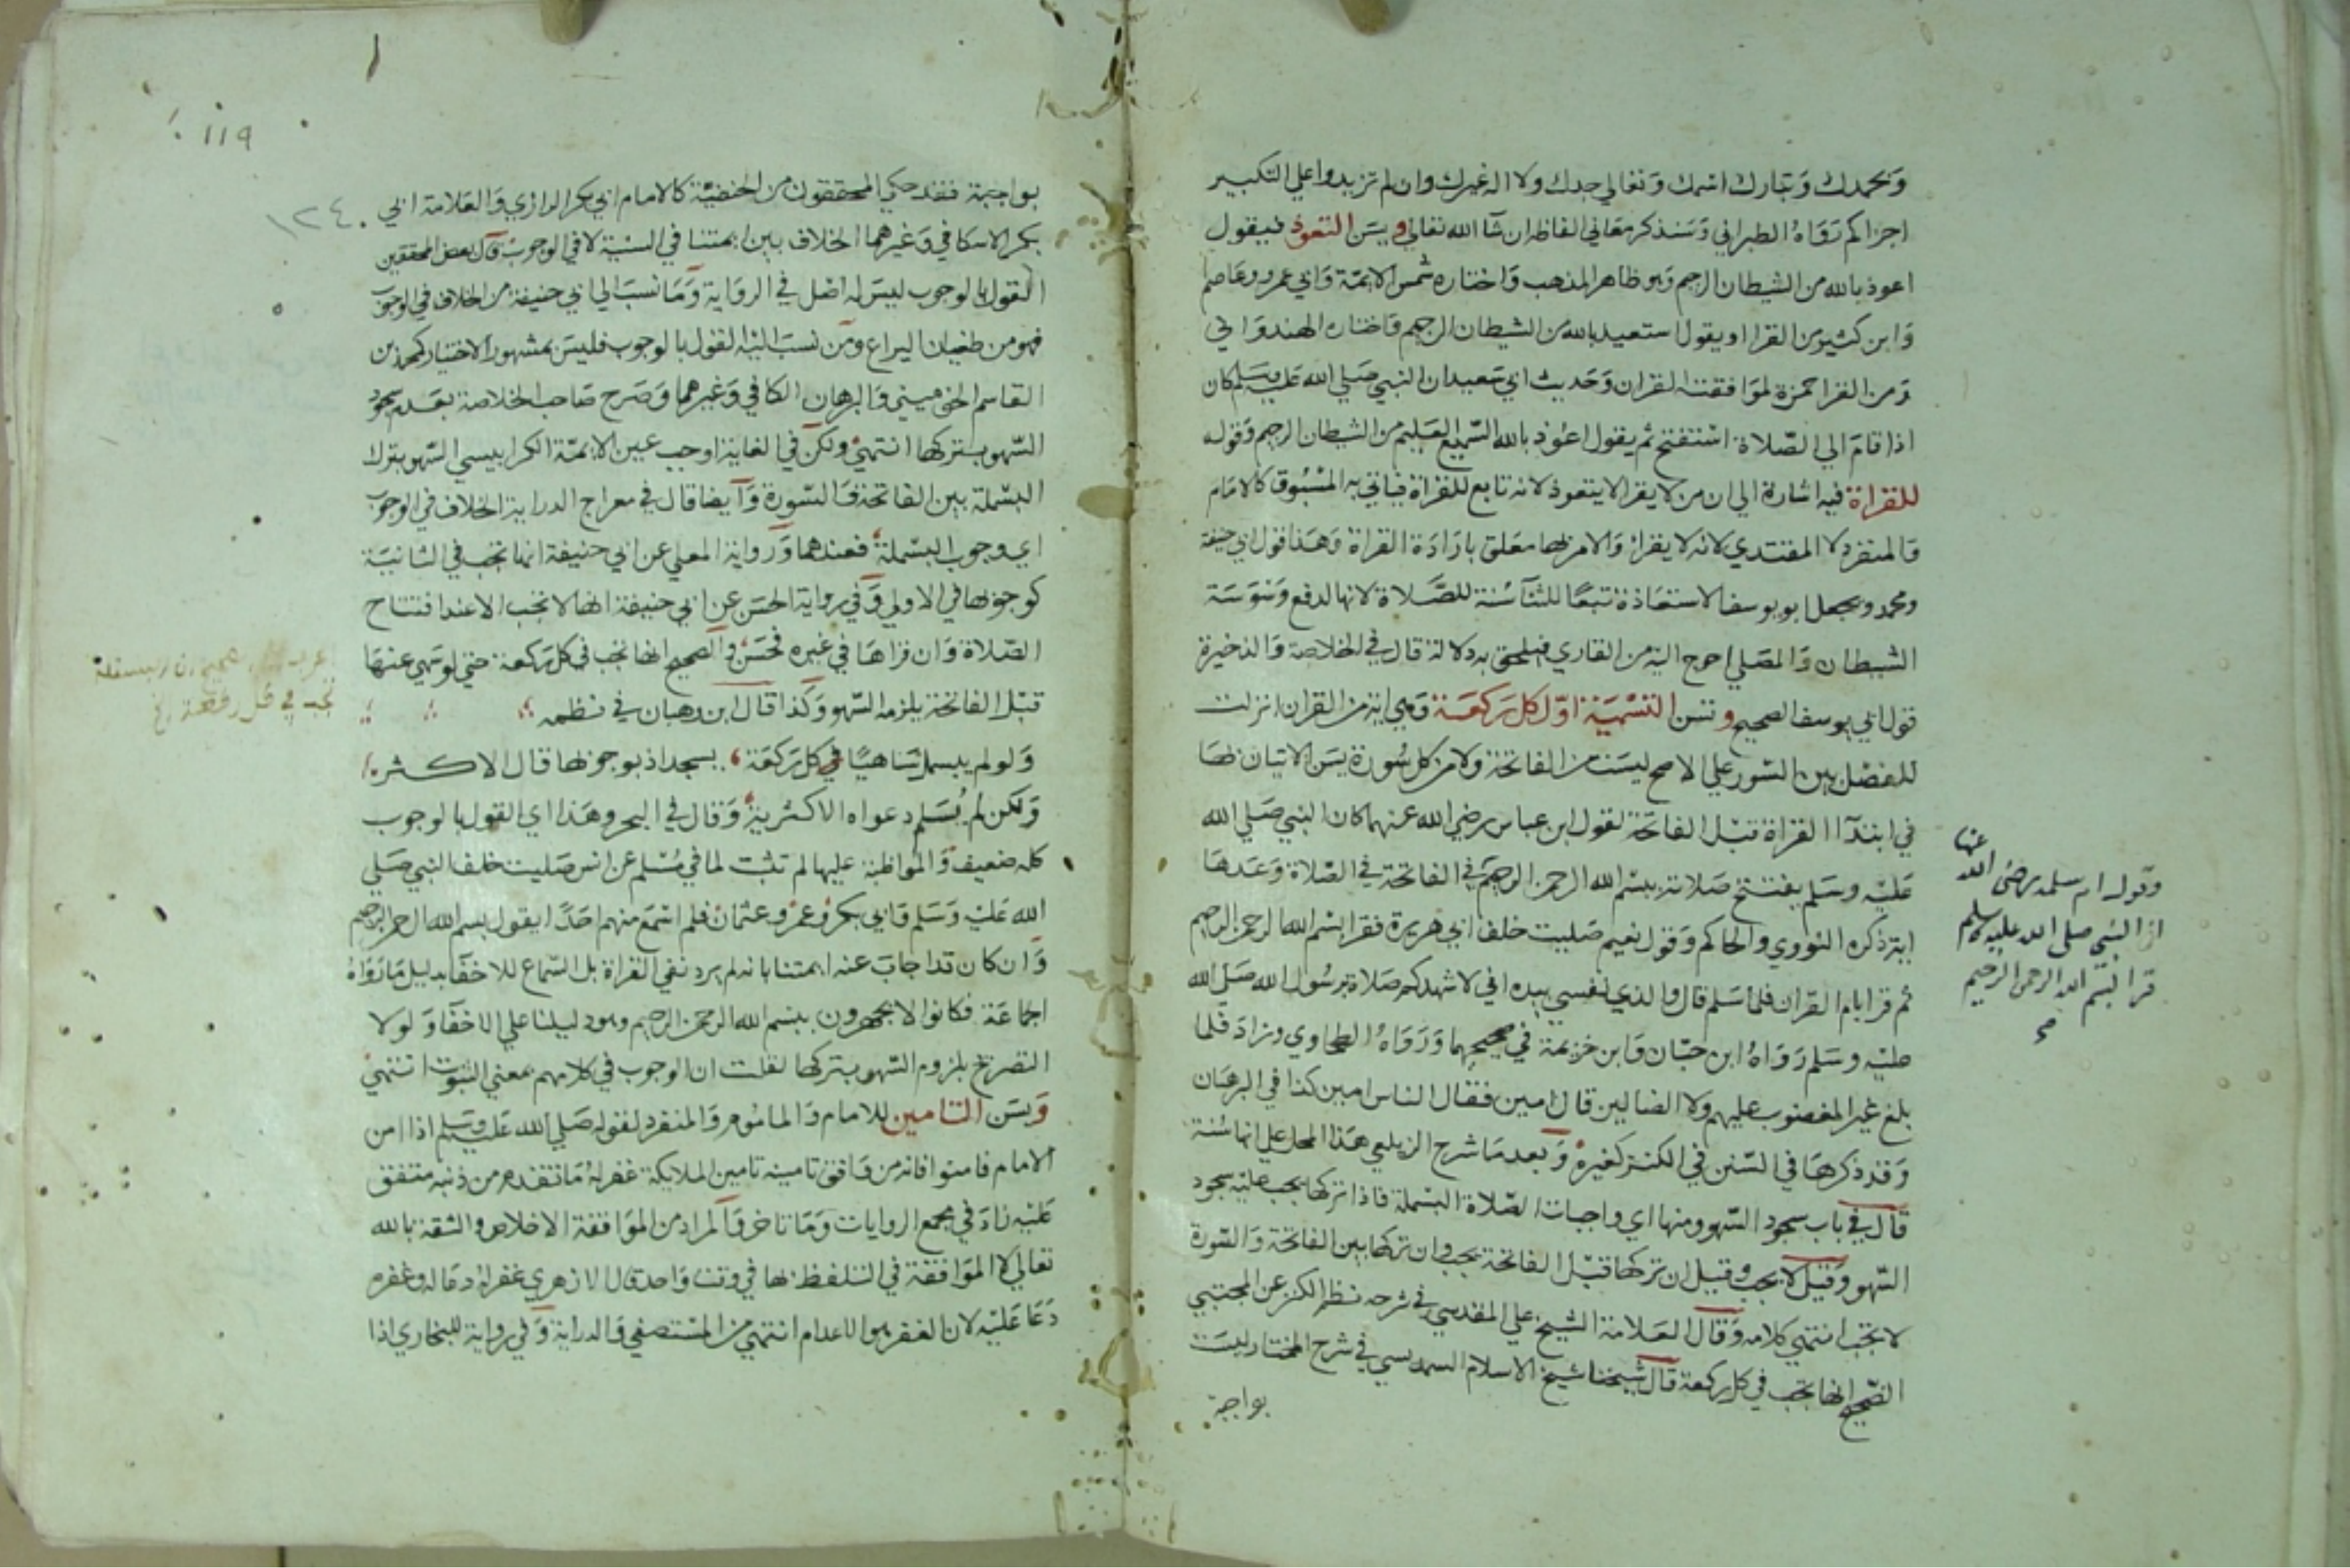 وبحمدك وتبارك اسمك وتعالي جدك ولا اله غيرك وان لم تزيدوا علي التكبير
اجزاكم رواه الطبراني وسنذكر معاني الفاظه ان شا الله تعالي ويسن التعوذ فيقول
اعوذ بالله من الشيطان الرجيم وهو ظاهر المذهب واختاره شمس الايمة وابي عمرو وعاصم
وابن كثير من القرا او يقول استعيذ بالله من الشيطان الرجيم واختاره الهندواني
ومن القرا حمزة لموافقته القران وحديث ابي سعيد ان النبي صلي الله عليه وسلم كان
اذا قام الي الصلاة استفتح ثم يقول اعوذ بالله السميع العليم من الشيطان الرجيم وقوله
للقراة فيه اشارة الي ان من لا يقرا لا يتعوذ لانه تابع للقراة فياتي به المسبوق كالامام
والمنفرد لا المقتدي لانه لا يقرا والامر بها معلق بارادة القراة وهذا قول ابي حنيفة
ومحمد ويجعل ابو يوسف الاستعاذة تبعا للثنا سنة للصلاة لانها لدفع وسوسة
الشيطان والمصلي احوج اليه من القاري فيلحق به دلالة قال في الخلاصة والذخيرة
قول ابي يوسف الصحيح وتسن التسمية اول كل ركعة وهي اية من القران انزلت
للفصل بين السور علي الاصح ليست من الفاتحة ولا من كل سورة يسن الاتيان بها
في ابتدآ القراة قبل الفاتحة لقول ابن عباس رضي الله عنهما كان النبي صلي الله
عليه وسلم يفتتح صلاته ببسم الله الرحمن الرحيم في الفاتحة في الصلاة وعدها
اية ذكره النووي والحاكم وقول نعيم صليت خلف ابي هريرة فقرا بسم الله الرحمن الرحيم
ثم قرا بام القران فلما سلم قال والذي نفسي بيده اني لاشبهكم صلاة برسول الله صلي الله
عليه وسلم رواه ابن حبان وابن خزيمة في صحيحهما ورواه الطحاوي وزاد فلما
بلغ غير المغضوب عليهم ولا الضالين قال امين فقال الناس امين كذا في البرهان
وقد ذكرها في السنن في الكنز كغيره وبعد ما شرح الزيلعي هذا المحل علي انها سنة
قال في باب سجود السهو ومنها اي واجبات الصلاة البسملة فاذا تركها يجب عليه سجود
السهو وقيل لا يجب وقيل ان تركها قبل الفاتحة يجب وان تركها بين الفاتحة والسورة
لا يجب انتهي كلامه وقال العلامة الشيخ علي المقدسي في شرحه نظم الكنز عن المجتبي
الصحيح انها تجب في كل ركعة قال شيخنا شيخ الاسلام السمديسي في شرح المختار ليست
بواجبة
وقول ام سلمة رضي الله عنها
ان النبي صلي الله عليه وسلم
قرا بسم الله الرحمن الرحيم
صح
١١٩
١٢٤
بواجبة فقد حكي المحققون من الحنفية كالامام ابي بكر الرازي والعلامة ابي
بكر الاسكافي وغيرهما الخلاف بين ايمتنا في السنية لا في الوجوب وقال بعض المحققين
القول بالوجوب ليس له اصل في الرواية وما نسب الي ابي حنيفة من الخلاف في الوجوب
فهو من طغيان اليراع ومن نسب اليه القول بالوجوب فليس بمشهور الاختيار كمحمد بن
القاسم والبرهان الكافي وغيرهما وصرح صاحب الخلاصة بعدم سجود
السهو بتركها انتهي ولكن في الغاية اوجب عين الايمة الكرابيسي السهو بترك
البسملة بين الفاتحة والسورة وايضا قال في معراج الدراية الخلاف في الوجوب
اي وجوب البسملة فعندهما ورواية المعلي عن ابي حنيفة انها تجب في الثانية
كوجوبها في الاولي وفي رواية الحسن عن ابي حنيفة انها لا تجب الا عند افتتاح
الصلاة وان قراها في غيره فحسن والصحيح انها تجب في كل ركعة حتي لو سهي عنها
قبل الفاتحة يلزمه السهو وكذا قال ابن وهبان في نظمه
ولو لم يبسمل ساهيا في كل ركعة يسجد اذ بوجوبها قال الاكثر
ولكن لم يسلم دعواه الاكثرية وقال في البحر وهذا اي القول بالوجوب
كله ضعيف والمواظبة عليها لم تثبت لما في مسلم عن انس صليت خلف النبي صلي
الله عليه وسلم وابي بكر وعمر وعثمان فلم اسمع منهم احدا يقول بسم الله الرحمن الرحيم
وان كان قد اجاب عنه ايمتنا بانه لم يرد نفي القراة بل السماع للاخفا بدليل ما رواه
اجماعة فكانوا لا يجهرون ببسم الله الرحمن الرحيم وهو دليلنا علي الاخفا ولولا
التصريح بلزوم السهو بتركها لقلت ان الوجوب في كلامهم بمعني الثبوت انتهي
ويسن التامين للامام والماموم والمنفرد لقوله صلي الله عليه وسلم اذا امن
الامام فامنوا فانه من وافق تامينه تامين الملايكة غفر له ما تقدم من ذنبه متفق
عليه زاد في مجمع الروايات وما تاخر والمراد من الموافقة الاخلاص والثقة بالله
تعالي لا الموافقة في التلفظ بها في وقت واحد قال الازهري غفرله دعا له وغفره
دعا عليه لان الغفر هو الاعدام انتهي من المستصفي والدراية وفي رواية للبخاري اذا
ان البسملة
تجب في كل ركعة